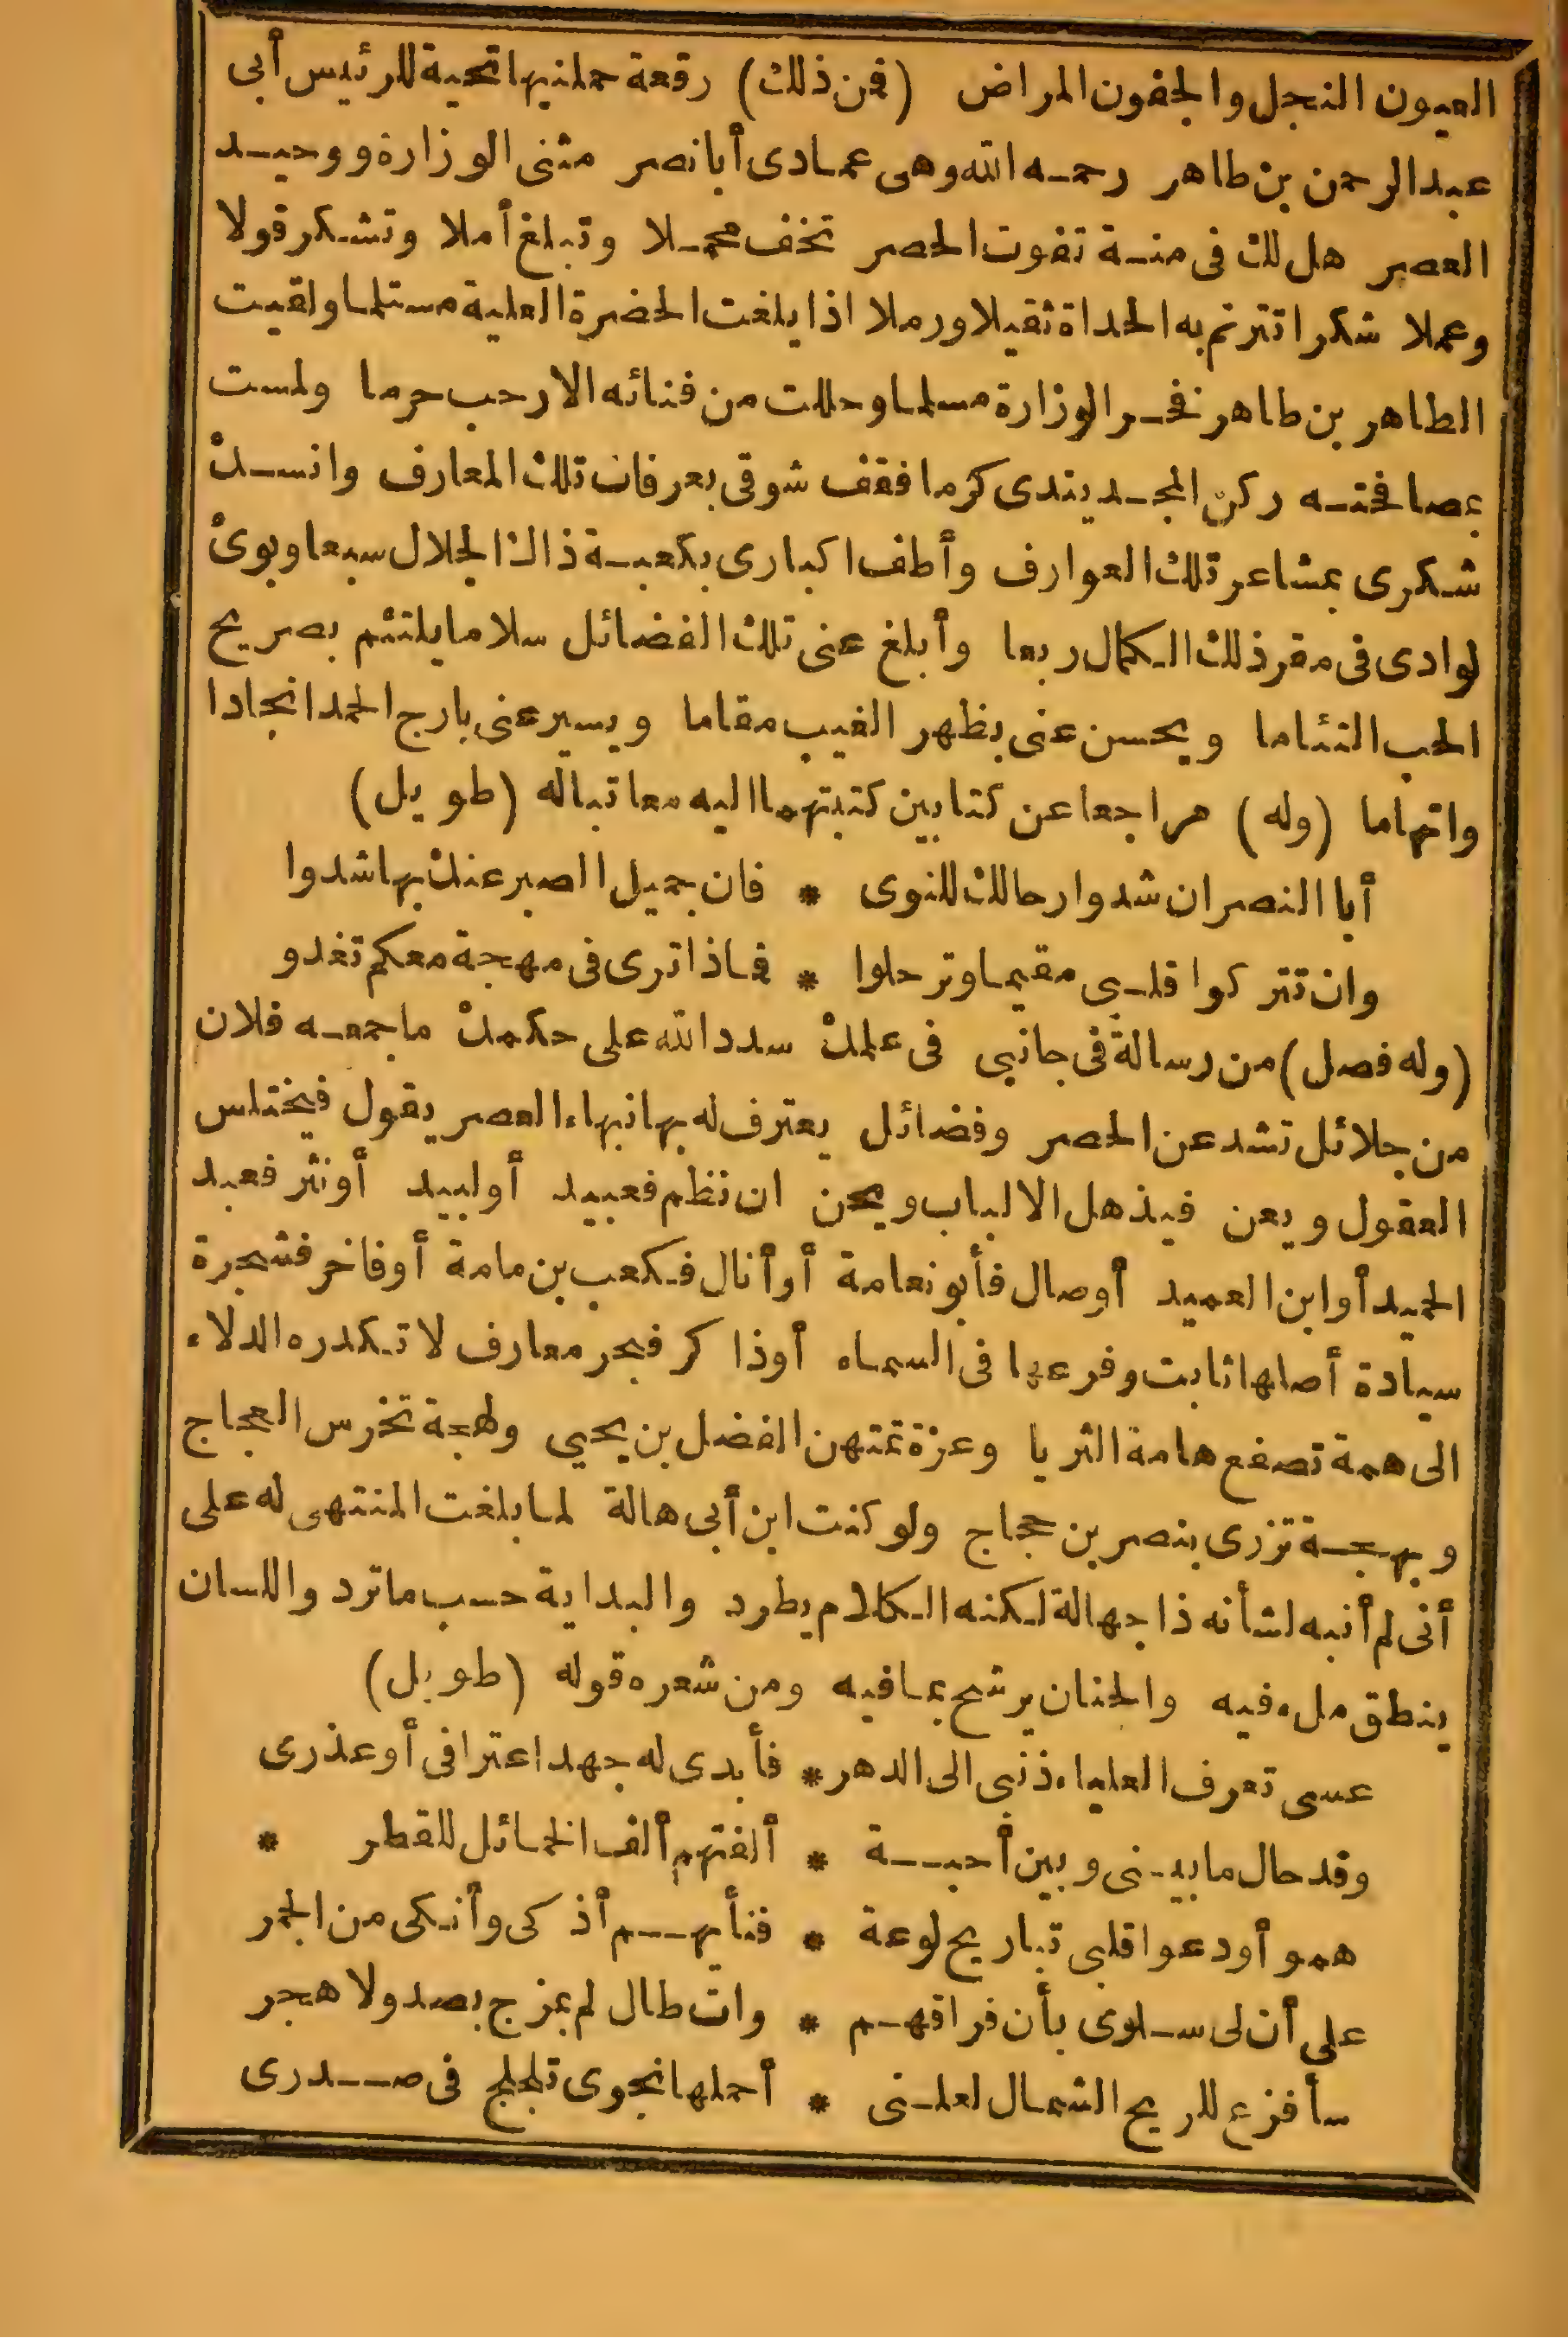 العيون النجل والجفون المراض (فمن ذلك) رقعة حملنيها تحية للرئيس أبى
عبد الرحمن بن طاهر رحمه الله وهى عمادى أبا نصر مثنى الوزارة ووحيد
العصر هل لك فى منة تفوت الحصر تخف محملا وتبلغ أملا وتشكر قولا
وعملا شكرا تترنم به الحداة ثقيلا ورملا اذا بلغت الحضرة العلية مستلما ولقيت
الطاهر بن طاهر نفخر الوزارة مسلما وحللت من فنائه الارحب حرما ولمست
بمصافحته ركن المجد يندى كرما فقف شوقى بعرفات تلك المعارف وانسك
شكرى بمشاعر تلك العوارف وأطف اكبارى بكعبة ذاك الجلال سبعا وبوئ
لوادى فى مقر ذلك الكمال ربعا وأبلغ عنى تلك الفضائل سلاما يلتئم بصريح
الحب التئاما ويحسن عنى بظهر الغيب مقاما ويسير عنى بارج الحمد انجادا
واتهاما (وله) مراجعا عن كتابين كتبتهما اليه معاتبا له (طويل)
أبا النصر ان شدوا رحالك للنوى * فان جميل الصبر عنك بها شدوا
وان تتركوا قلبى مقيما وترحلوا * فماذا ترى فى مهجة معكم تغدو
(وله فصل) من رسالة فى جانبى فى علمك سدد الله على حكمك ما جمعه فلان
من جلائل تشد عن الحصر وفضائل يعترف له بها نبهاء العصر يقول فيختلس
العقول ويعن فيذهل الالباب ويحن ان نظم فعبيد أولبيد أونثر فعبد
الحميد أوابن العميد أوصال فأبو نعامة أوأنال فكعب بن مامة أوفاخر فشجرة
سيادة أصلها ثابت وفرعها فى السماء أوذا كر فبحر معارف لا تكدره الدلاء
الى همة تصفع هامة الثريا وعزة تمتهن الفضل بن يحيى ولهجة تخرس العجاج
وبهجة تزرى بنصر بن حجاج ولو كنت ابن أبى هالة لما بلغت المنتهى له على
أنى لم أنبه لشأنه ذا جهالة لكنه الكلام يطرد والبداية حسب ما ترد واللسان
ينطق ملء فيه والجنان يرشح بما فيه ومن شعره قوله (طويل)
عسى تعرف العلياء ذنبى الى الدهر * فأبدى له جهد اعترافى أوعذرى
وقد حال ما بينى وبين أحبة * ألفتهم ألف الخمائل للقطر *
همو أودعوا قلبى تباريح لوعة * فنأيهم أذكى وأنكى من الجمر
على أن لى سلوى بأن فراقهم * وان طال لم يمزج بصد ولا هجر
سأفزع للريح الشمال لعلنى * أحملها نجوى تلجلج فى صدرى